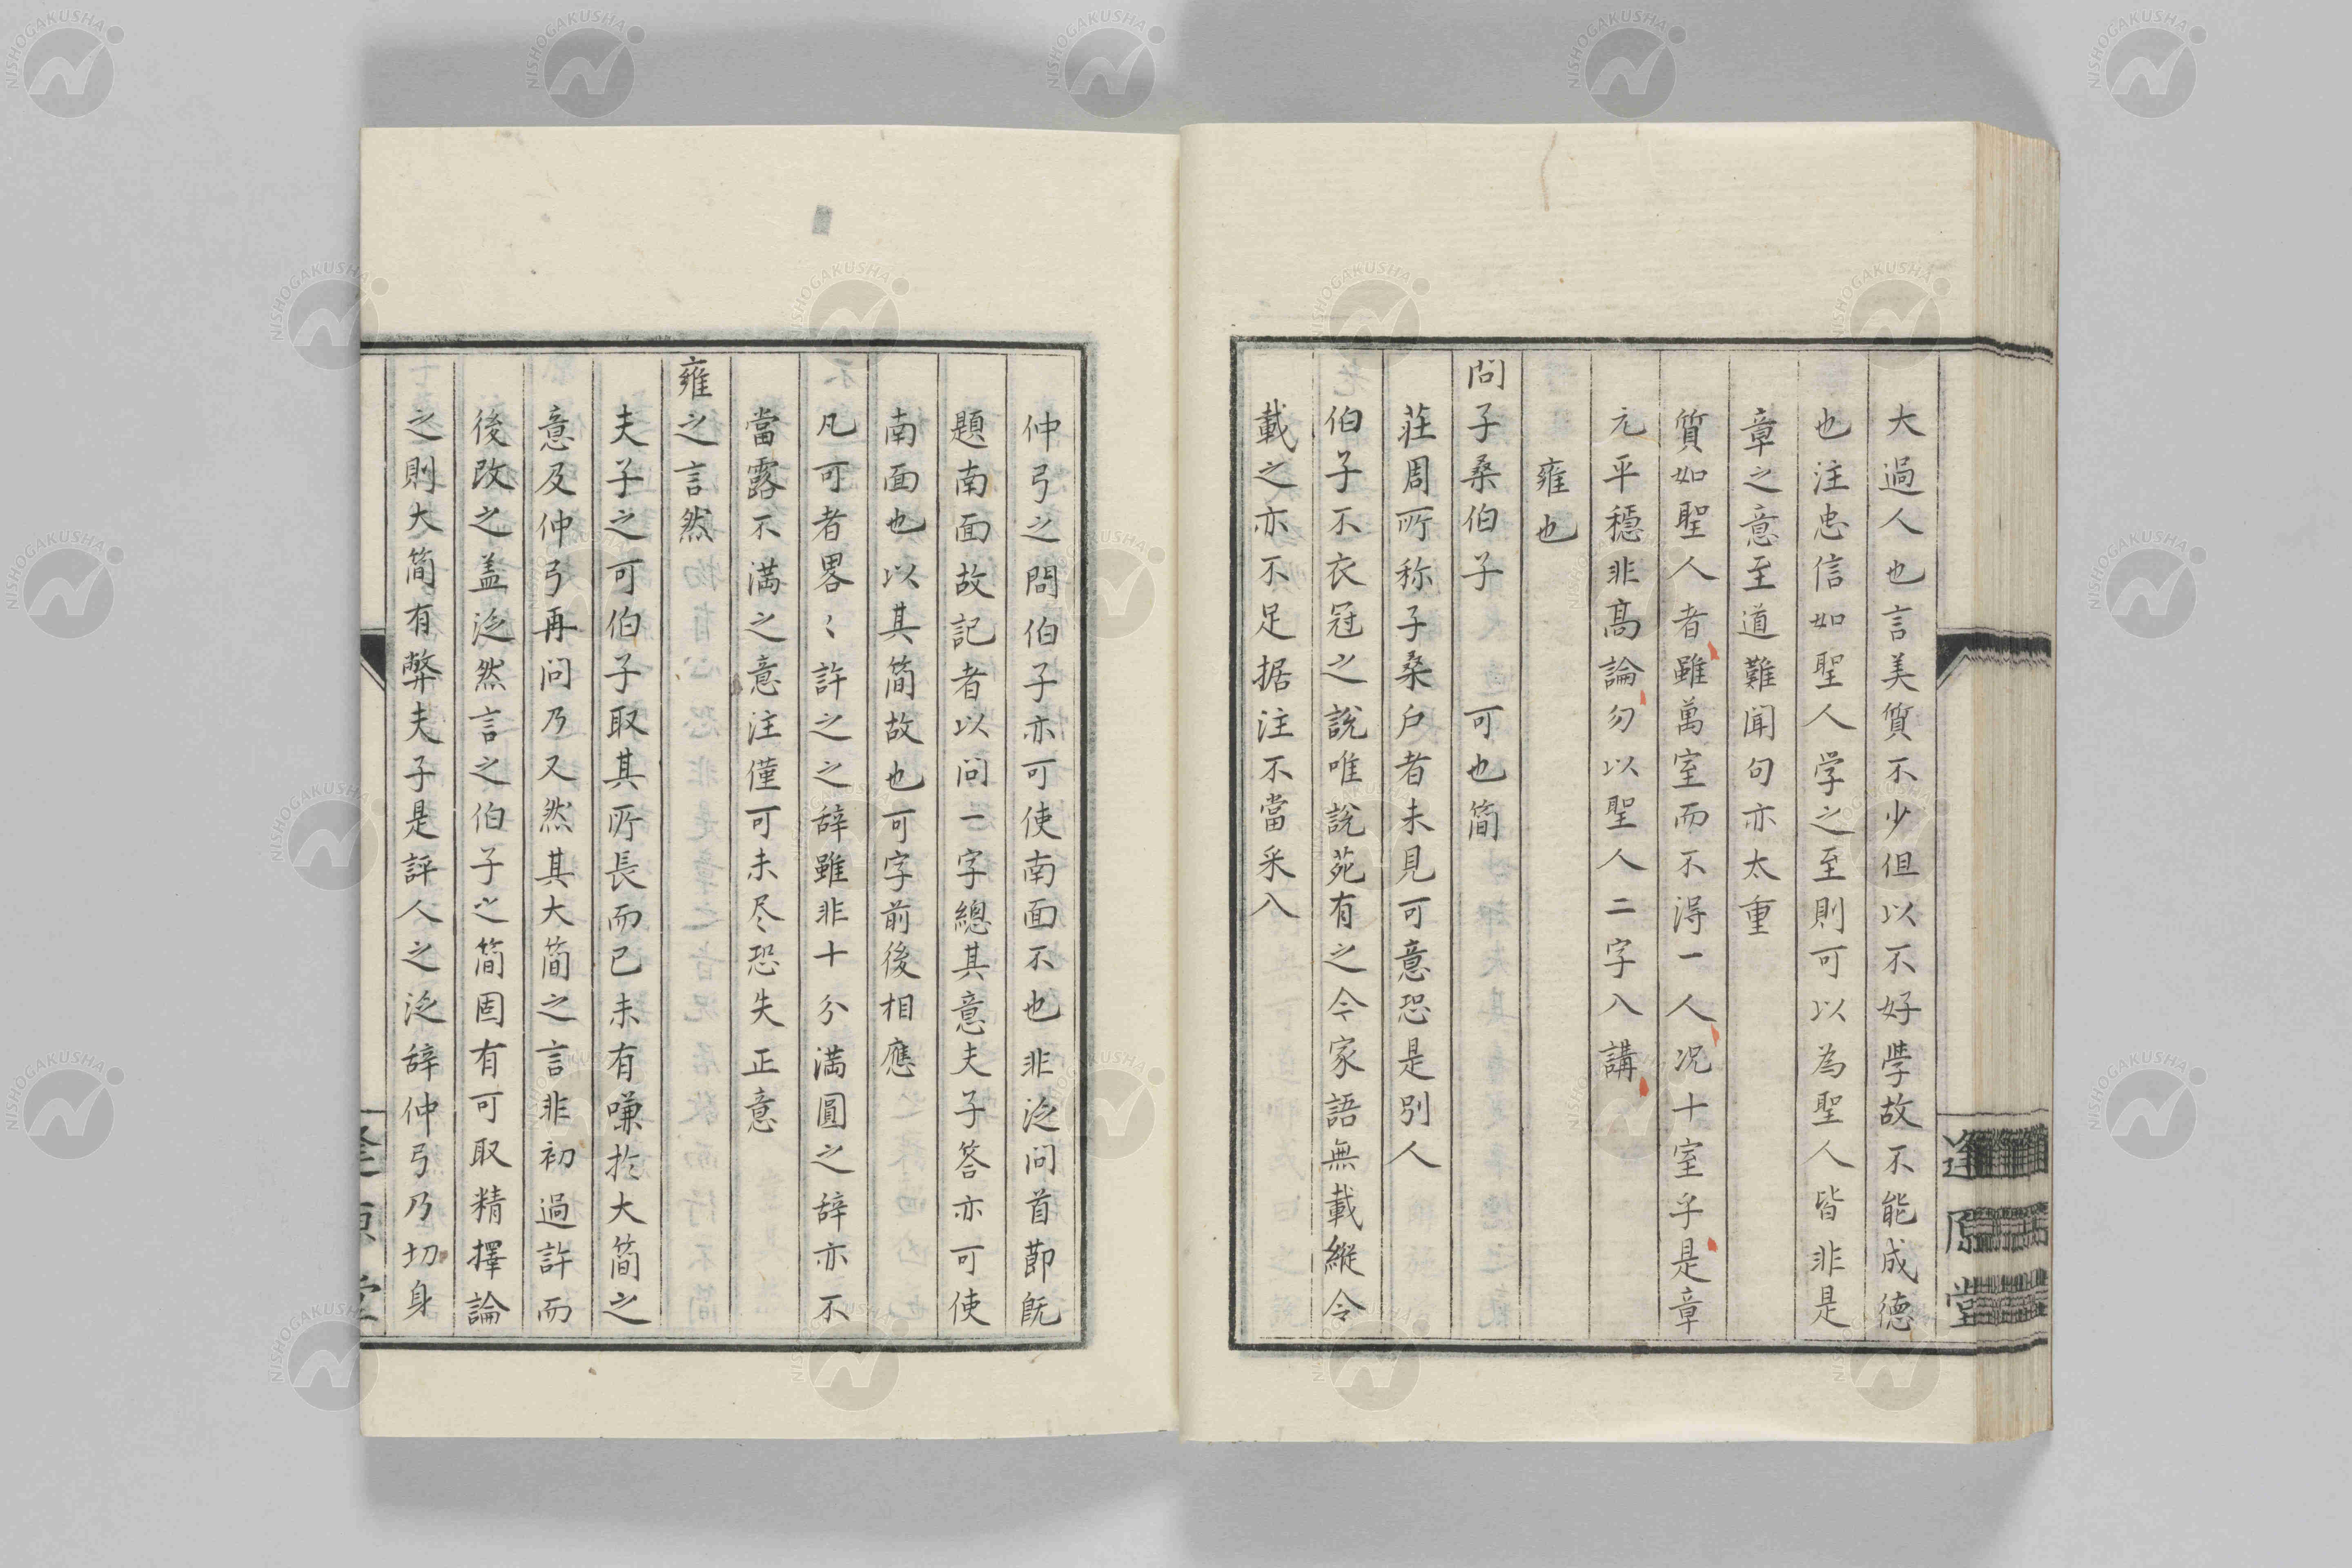 大過人也言美質不少但以不好学故不能成徳
也注忠信如聖人学之至則可以為聖人皆非是
章之意至道難聞句亦太重
質如聖人者雖萬室而不得一人况十室乎是章
元平穏非高論勿以聖人二字入講
雍也
问子桑伯子　可也簡
荘周所称子桑户者未見可意恐是别人
伯子不衣冠之說唯說苑有之今家語無載縦令
載之亦不足据注不當采入
逢原堂
仲弓之問伯子亦可使南面不也非泛问首節既
題南面故記者以问一字總其意夫子答亦可使
南面也以其簡故也可字前後相應
凡可者畧〻許之之辞雖非十分満圓之辞亦不
當露不満之意注僅可未尽恐失正意
雍之言然
夫子之可伯子取其所長而已未有嗛扵大简之
意及仲弓再问乃又然其大简之言非初過許而
後改之盖泛然言之伯子之简固有可取精擇論
之則大简有弊夫子是評人之泛辞仲弓乃切身
NISHOGAKUSHA